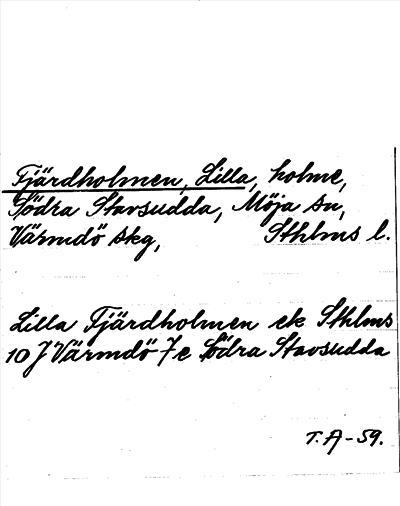 Fjärdholmen, Lilla, holme,
Södra Stavsudda, Möja sn,
Värmdö skg, Sthlms l.
Lilla Fjärdholmen ek Sthlms
10 J Värmdö 7 e Södra Stavsudda
T. A-59.